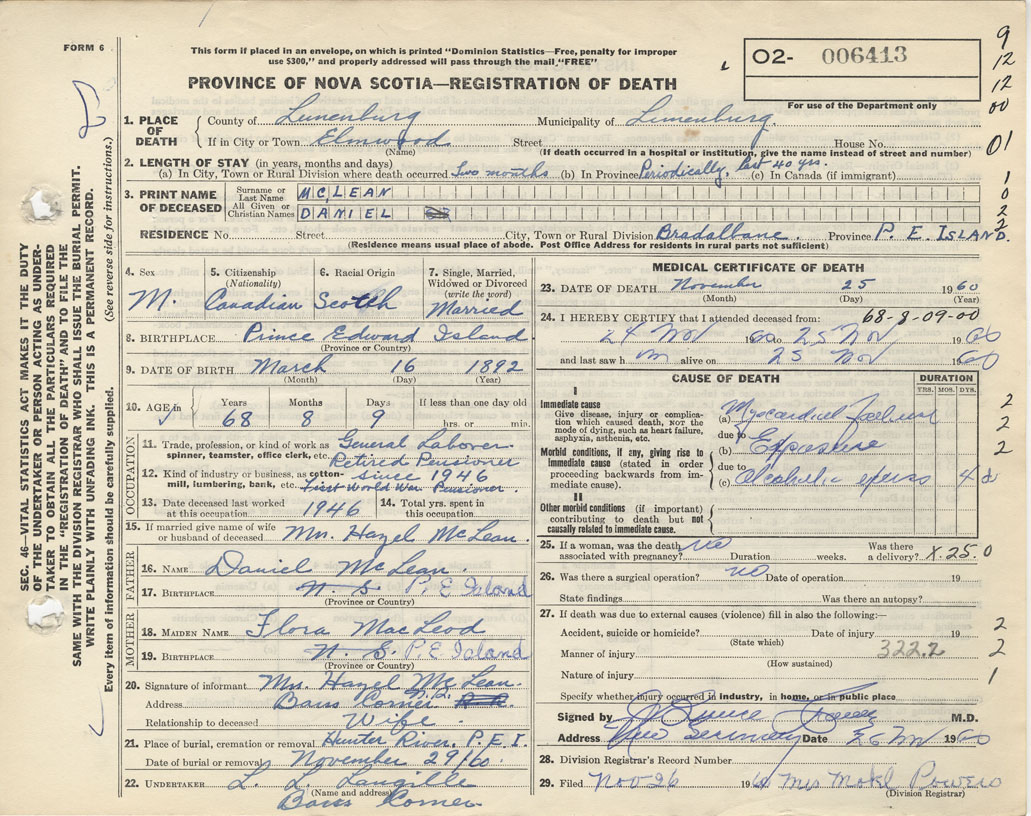 FORM 6
This form if placed in an envelope, on which is printed "Dominion Statistics—Free, penalty for improper
use $300," and properly addressed will pass through the mail "FREE"
PROVINCE OF NOVA SCOTIA—REGISTRATION OF DEATH
O2- 006413
For use of the Department only
9
12
12
00
01
1
0
2
2
SEC. 46—VITAL STATISTICS ACT MAKES IT THE DUTY
OF THE UNDERTAKER OR PERSON ACTING AS UNDER-
TAKER TO OBTAIN ALL THE PARTICULARS REQUIRED
IN THE "REGISTRATION OF DEATH" AND TO FILE THE
SAME WITH THE DIVISION REGISTRAR WHO SHALL ISSUE THE BURIAL PERMIT.
WRITE PLAINLY WITH UNFADING INK. THIS IS A PERMANENT RECORD.
Every item of information should be carefully supplied. (See reverse side for instructions.)
1. PLACE OF DEATH
County of Lunenburg Municipality of Lunenburg
If in City or Town Elmwood Street House No.
(Name) (If death occurred in a hospital or institution, give the name instead of street and number)
2. LENGTH OF STAY (in years, months and days)
(a) In City, Town or Rural Division where death occurred Two months (b) In Province Periodically, Past 40 yrs. (c) In Canada (if immigrant)
3. PRINT NAME OF DECEASED
Surname or Last Name MCLEAN
All Given or Christian Names DANIEL
RESIDENCE No. Street City, Town or Rural Division Bradalbane Province P. E. ISLAND.
(Residence means usual place of abode. Post Office Address for residents in rural parts not sufficient)
4. Sex M.
5. Citizenship (Nationality) Canadian
6. Racial Origin Scotch
7. Single, Married, Widowed or Divorced (write the word) Married
8. BIRTHPLACE Prince Edward Island
(Province or Country)
9. DATE OF BIRTH March 16 1892
(Month) (Day) (Year)
10. AGE in Years 68 Months 8 Days 9 If less than one day old hrs. or min.
OCCUPATION
11. Trade, profession, or kind of work as spinner, teamster, office clerk, etc. General Laborer
Retired Pensioner
12. Kind of industry or business, as cotton-mill, lumbering, bank, etc. since 1946
First World War Pensioner.
13. Date deceased last worked at this occupation 1946
14. Total yrs. spent in this occupation
15. If married give name of wife or husband of deceased Mrs. Hazel McLean
FATHER
16. NAME Daniel McLean.
17. BIRTHPLACE N. S. P. E Island
(Province or Country)
MOTHER
18. MAIDEN NAME Flora MacLeod
19. BIRTHPLACE N. S. P. E Island
(Province or Country)
20. Signature of informant Mrs. Hazel McLean.
Address Barss Corner
Relationship to deceased Wife.
21. Place of burial, cremation or removal Hunter River, P.E.I.
Date of burial or removal November 29/60.
22. UNDERTAKER L. L. Langille
(Name and address)
Barss Corner
MEDICAL CERTIFICATE OF DEATH
23. DATE OF DEATH November 25 1960
(Month) (Day) (Year)
24. I HEREBY CERTIFY that I attended deceased from: 68-8-09-00
24 Nov 1960 to 25 Nov 1960
and last saw h m alive on 25 Nov 1960
CAUSE OF DEATH
DURATION
YRS. MOS. DYS.
I
Immediate cause
Give disease, injury or complication which caused death, NOT the mode of dying, such as heart failure, asphyxia, asthenia, etc.
(a) Myocardial Failure
due to
Morbid conditions, if any, giving rise to immediate cause (stated in order proceeding backwards from immediate cause).
(b) Exposure
due to
(c) Alcoholic excess 4 d
II
Other morbid conditions (if important) contributing to death but not causally related to immediate cause.
2
2
2
25. If a woman, was the death associated with pregnancy? No Duration weeks. Was there a delivery? X.25.0
26. Was there a surgical operation? NO Date of operation 19
State findings Was there an autopsy?
27. If death was due to external causes (violence) fill in also the following:—
Accident, suicide or homicide? Date of injury 19
(State which)
Manner of injury 322.2
(How sustained)
Nature of injury
2
2
1
Specify whether injury occurred in industry, in home, or in public place
Signed by M.D.
Address New Germany Date 26 Nov 1960
28. Division Registrar's Record Number
29. Filed Nov 26 1960 Mrs Powers
(Division Registrar)